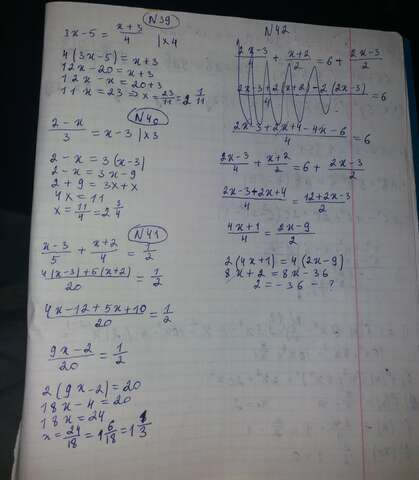 N39
3x-5 = (x+3)/4 |x4
4(3x-5) = x+3
12x-20 = x+3
12x-x = 20+3
11x = 23 ⇒ x = 23/11 = 2 1/11
N40
(2-x)/3 = x-3 |x3
2-x = 3(x-3)
2-x = 3x-9
2+9 = 3x+x
4x = 11
x = 11/4 = 2 3/4
N41
(x-3)/5 + (x+2)/4 = 1/2
(4(x-3)+5(x+2))/20 = 1/2
(4x-12+5x+10)/20 = 1/2
(9x-2)/20 = 1/2
2(9x-2) = 20
18x-4 = 20
18x = 24
x = 24/18 = 1 6/18 = 1 1/3
N42
(2x-3)/4 + (x+2)/2 = 6 + (2x-3)/2
(2x-3+2(x+2)-2(2x-3))/4 = 6
(2x-3+2x+4-4x-6)/4 = 6
(2x-3)/4 + (x+2)/2 = 6 + (2x-3)/2
(2x-3+2x+4)/4 = (12+2x-3)/2
(4x+1)/4 = (2x-9)/2
2(4x+1) = 4(2x-9)
8x+2 = 8x-36
2 = -36 - ?